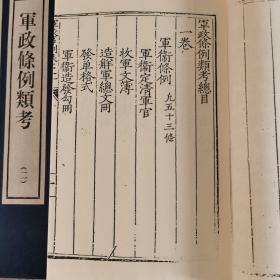 軍政條例類考
(二)
軍政條例類考總目
一卷
軍衛條例 凡五十三條
軍衛定清軍官
收軍文簿
造解軍總文冊
發單格式
軍衛造發勾冊